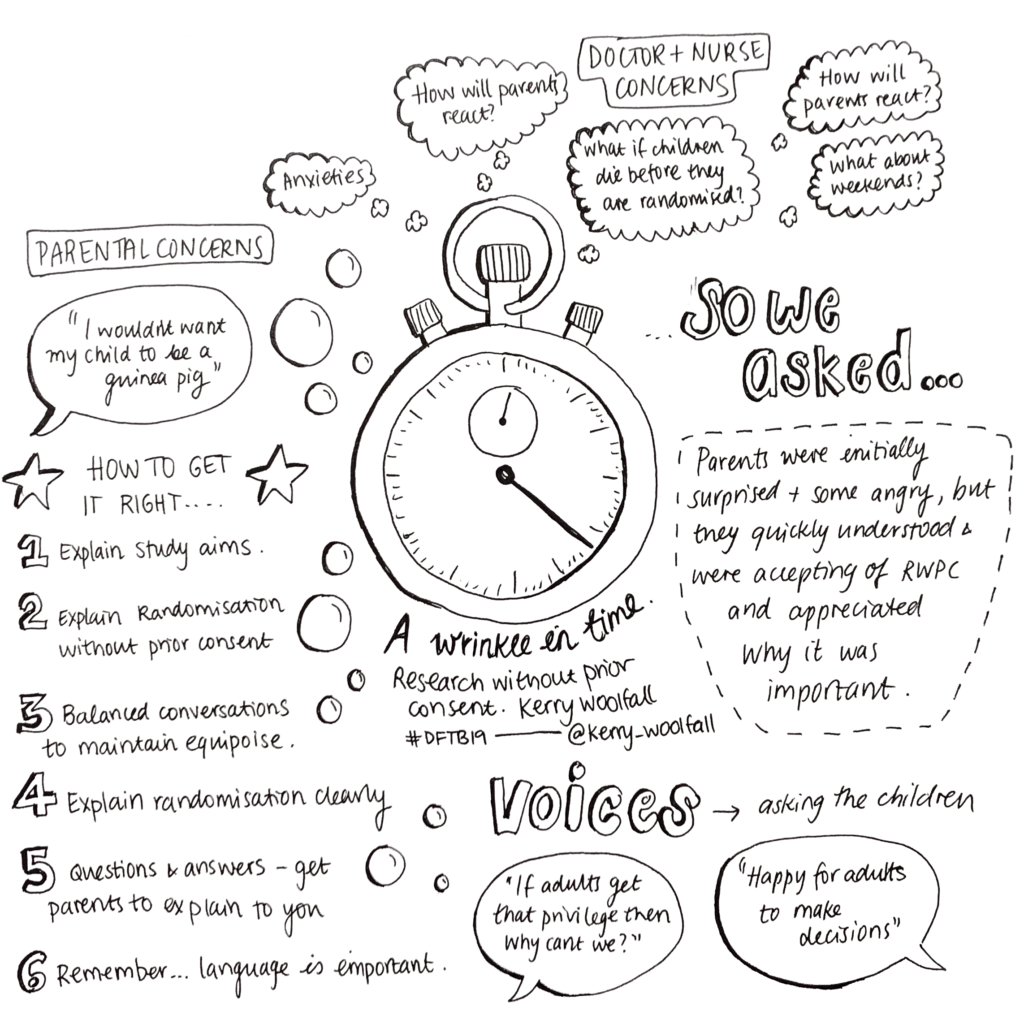 DOCTOR + NURSE
CONCERNS
How will parents
react?
How will
parents react?
What if children
die before they
are randomised?
What about
weekends?
Anxieties
PARENTAL CONCERNS
"I wouldn't want
my child to be a
guinea pig"
...So we
asked...
Parents were initially
surprised + some angry, but
they quickly understood &
were accepting of RWPC
and appreciated
why it was
important.
HOW TO GET
IT RIGHT....
1 Explain study aims.
2 Explain Randomisation
without prior consent
3 Balanced conversations
to maintain equipoise.
4 Explain randomisation clearly
5 Questions & answers - get
parents to explain to you
6 Remember... language is important.
A wrinkle in time.
Research without prior
consent. Kerry Woolfall
#DFTB19 — @kerry_woolfall
Voices → asking the children
"If adults get
that privilege then
why cant we?"
"Happy for adults
to make
decisions"